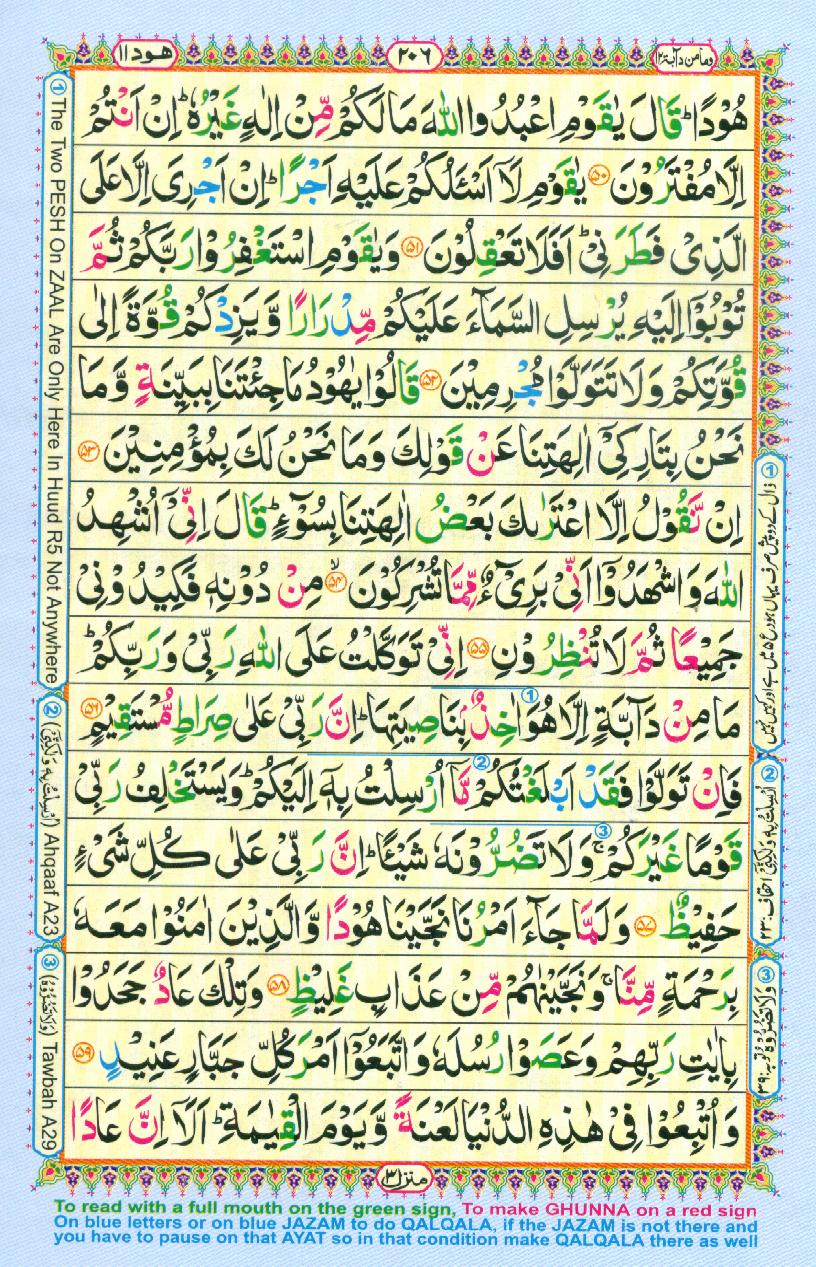 وما من دآبة ۱۲
۲۰۶
هود ۱۱
هُوْدًا ؕ قَالَ يٰقَوْمِ اعْبُدُوا اللّٰهَ مَا لَكُمْ مِّنْ اِلٰهٍ غَيْرُهٗ ؕ اِنْ اَنْتُمْ
اِلَّا مُفْتَرُوْنَ ۵۰ يٰقَوْمِ لَاۤ اَسْـَٔلُكُمْ عَلَيْهِ اَجْرًا ؕ اِنْ اَجْرِىَ اِلَّا عَلَى
الَّذِىْ فَطَرَنِىْ ؕ اَفَلَا تَعْقِلُوْنَ ۵۱ وَيٰقَوْمِ اسْتَغْفِرُوْا رَبَّكُمْ ثُمَّ
تُوْبُوْۤا اِلَيْهِ يُرْسِلِ السَّمَآءَ عَلَيْكُمْ مِّدْرَارًا وَّيَزِدْكُمْ قُوَّةً اِلٰى
قُوَّتِكُمْ وَلَا تَتَوَلَّوْا مُجْرِمِيْنَ ۵۲ قَالُوْا يٰهُوْدُ مَا جِئْتَنَا بِبَيِّنَةٍ وَّمَا
نَحْنُ بِتَارِكِىْۤ اٰلِهَتِنَا عَنْ قَوْلِكَ وَمَا نَحْنُ لَكَ بِمُؤْمِنِيْنَ ۵۳
اِنْ نَّقُوْلُ اِلَّا اعْتَرٰىكَ بَعْضُ اٰلِهَتِنَا بِسُوْٓءٍ ؕ قَالَ اِنِّىْۤ اُشْهِدُ
اللّٰهَ وَاشْهَدُوْۤا اَنِّىْ بَرِىْٓءٌ مِّمَّا تُشْرِكُوْنَ ۵۴ مِنْ دُوْنِهٖ فَكِيْدُوْنِىْ
جَمِيْعًا ثُمَّ لَا تُنْظِرُوْنِ ۵۵ اِنِّىْ تَوَكَّلْتُ عَلَى اللّٰهِ رَبِّىْ وَرَبِّكُمْ ؕ
مَا مِنْ دَآبَّةٍ اِلَّا هُوَ اٰخِذٌۢ بِنَاصِيَتِهَا ؕ اِنَّ رَبِّىْ عَلٰى صِرَاطٍ مُّسْتَقِيْمٍ ۵۶
فَاِنْ تَوَلَّوْا فَقَدْ اَبْلَغْتُكُمْ مَّاۤ اُرْسِلْتُ بِهٖۤ اِلَيْكُمْ ؕ وَيَسْتَخْلِفُ رَبِّىْ
قَوْمًا غَيْرَكُمْ ۚ وَلَا تَضُرُّوْنَهٗ شَيْـًٔا ؕ اِنَّ رَبِّىْ عَلٰى كُلِّ شَىْءٍ
حَفِيْظٌ ۵۷ وَلَمَّا جَآءَ اَمْرُنَا نَجَّيْنَا هُوْدًا وَّالَّذِيْنَ اٰمَنُوْا مَعَهٗ
بِرَحْمَةٍ مِّنَّا ۚ وَنَجَّيْنٰهُمْ مِّنْ عَذَابٍ غَلِيْظٍ ۵۸ وَتِلْكَ عَادٌ جَحَدُوْا
بِاٰيٰتِ رَبِّهِمْ وَعَصَوْا رُسُلَهٗ وَاتَّبَعُوْۤا اَمْرَ كُلِّ جَبَّارٍ عَنِيْدٍ ۵۹
وَاُتْبِعُوْا فِىْ هٰذِهِ الدُّنْيَا لَعْنَةً وَّيَوْمَ الْقِيٰمَةِ ؕ اَلَاۤ اِنَّ عَادًا
منزل ۳
① The Two PESH On ZAAL Are Only Here In Huud R5 Not Anywhere
② (اُرْسِلْتُ بِهٖ وَلٰكِنِّىْ) Ahqaaf A23
③ (وَلَا تَضُرُّوْهُ) Tawbah A29
① ذال کے دو پیش صرف یہاں ہود ع ۵ میں ہے اور کہیں نہیں
② اُرْسِلْتُ بِهٖ وَلٰكِنِّىْ احقاف: ۲۳
③ وَلَا تَضُرُّوْهُ توبہ: ۳۹
To read with a full mouth on the green sign, To make GHUNNA on a red sign
On blue letters or on blue JAZAM to do QALQALA, if the JAZAM is not there and
you have to pause on that AYAT so in that condition make QALQALA there as well